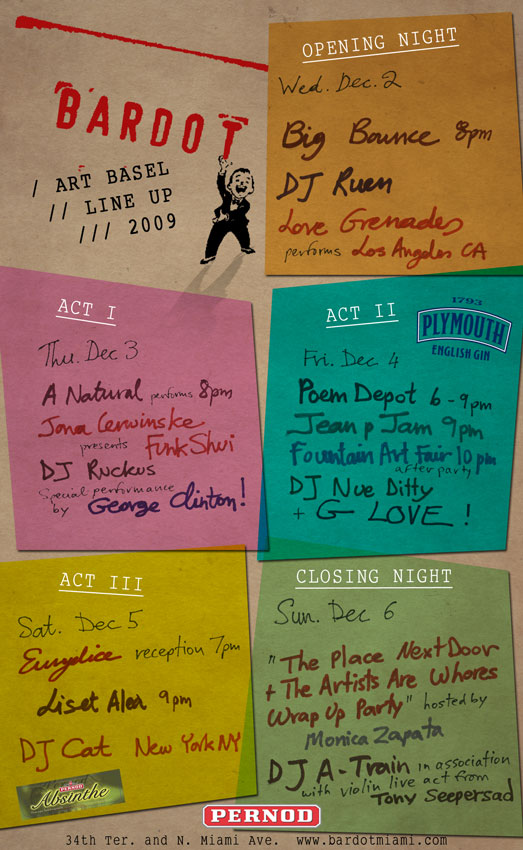 BARDOT
/ ART BASEL
// LINE UP
/// 2009
OPENING NIGHT
Wed. Dec. 2
Big Bounce 8pm
DJ Ruen
Love Grenades
performs Los Angeles CA
ACT I
Thu. Dec 3
A Natural performs 8pm
Jona Cerwinske
presents Funk Shui
DJ Ruckus
Special performance
by George Clinton!
ACT II
1793
PLYMOUTH
ENGLISH GIN
Fri. Dec 4
Poem Depot 6-9pm
Jean p Jam 9pm
Fountain Art Fair 10pm
after party
DJ Nue Ditty
+ G LOVE!
ACT III
Sat. Dec 5
Eurydice reception 7pm
Liset Alea 9pm
DJ Cat New York NY
PERNOD
Absinthe
CLOSING NIGHT
Sun. Dec 6
"The Place Next Door
+ The Artists Are Whores
Wrap Up Party" hosted by
Monica Zapata
DJ A-Train in association
with violin live act from
Tony Seepersad
PERNOD
34th Ter. and N. Miami Ave. www.bardotmiami.com